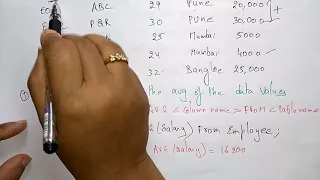 ABC 29 Pune 20,000
PQR 30 Pune 30,000
N 25 Mumbai 5000
24 Mumbai 4000
32 Banglore 25,000
the avg of the data values
<Column name> FROM <Table name
(Salary) from Employee;
Avg (Salary) = 16800